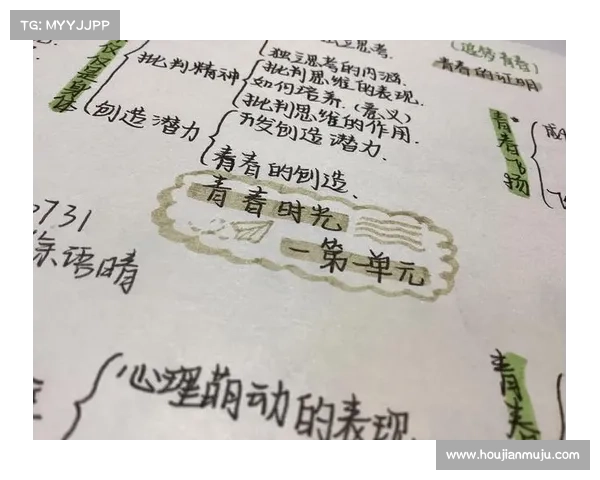 TG: MYYJJPP
独立思考.
独立思考的内涵
批判思维的表现.
批判精神
如何培养.(意义)
批判思维的作用.
创造潜力
开发创造潜力.
青春的创造.
(追梦青春)
青春的证明
青春飞扬
青春时光
一第一单元
0731
徐语晴
心理萌动的表现.
青春
www.houjianmuju.com